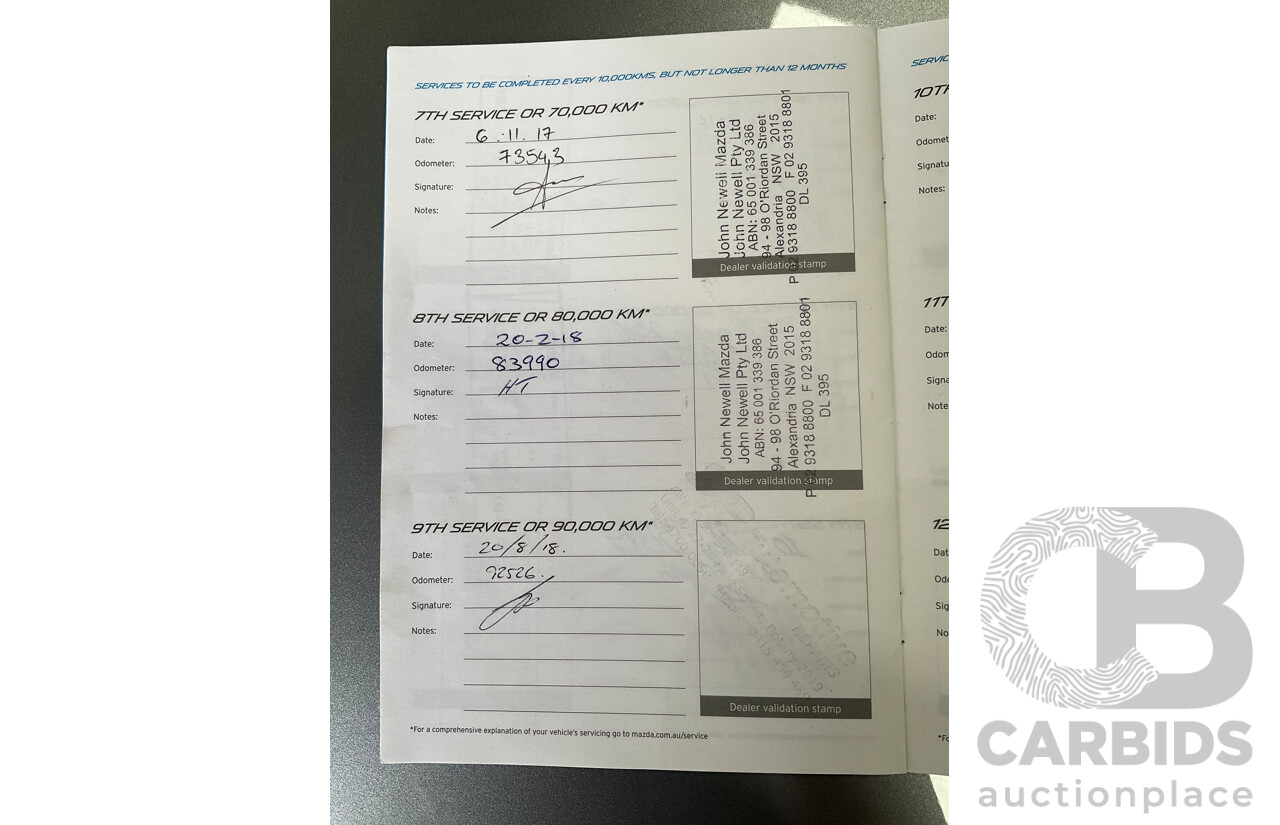 SERVICES TO BE COMPLETED EVERY 10,000KMS, BUT NOT LONGER THAN 12 MONTHS
7TH SERVICE OR 70,000 KM*
Date: 6.11.17
Odometer: 73543
Signature:
Notes:
John Newell Mazda
John Newell Pty Ltd
ABN: 65 001 339 386
94 - 98 O'Riordan Street
Alexandria NSW 2015
P 02 9318 8800 F 02 9318 8801
DL 395
Dealer validation stamp
8TH SERVICE OR 80,000 KM*
Date: 20-2-18
Odometer: 83990
Signature: HT
Notes:
John Newell Mazda
John Newell Pty Ltd
ABN: 65 001 339 386
94 - 98 O'Riordan Street
Alexandria NSW 2015
P 02 9318 8800 F 02 9318 8801
DL 395
Dealer validation stamp
9TH SERVICE OR 90,000 KM*
Date: 20/8/18.
Odometer: 92526.
Signature:
Notes:
Botany 2019
Dealer validation stamp
*For a comprehensive explanation of your vehicle's servicing go to mazda.com.au/service
SERVIC
10TH
Date:
Odomet
Signatu
Notes:
11T
Date:
Odom
Signa
Note
12
Dat
Odo
Sig
No
*Fo
CB
CARBIDS
auctionplace